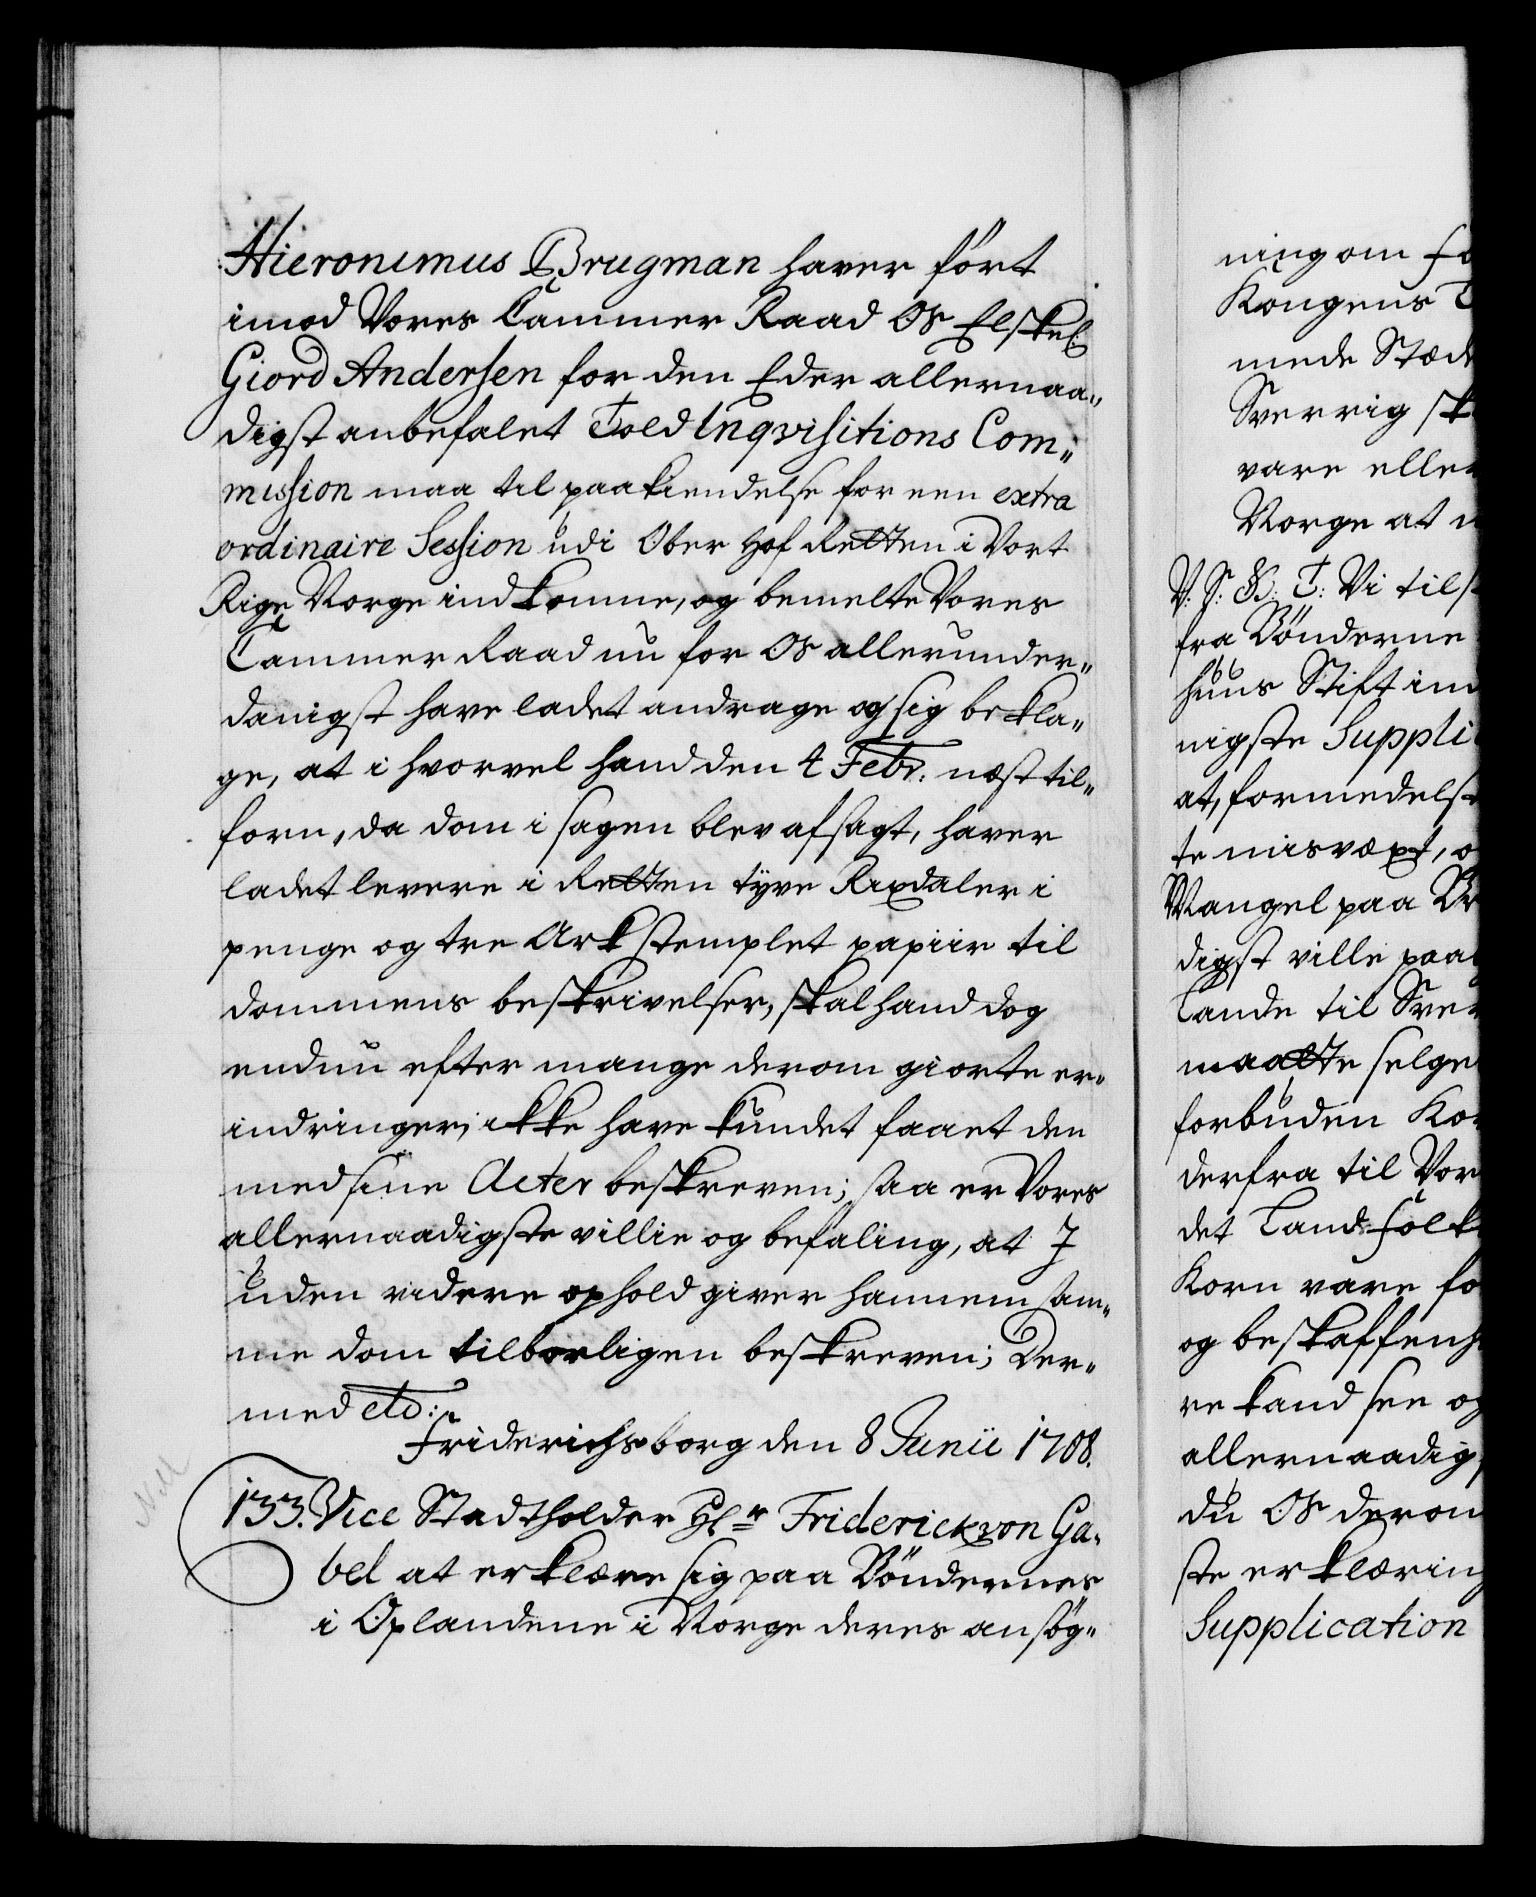 Hieronimus Brugman haver ført
imod Vores Cammer Raad Os Elskel:
Giord Andersen for den Eder allernaa„
digst anbefalet Told Inqvisitions Com„
mission maa til paakiendelse for een extra
ordinaire Session udi Ober Hof Retten i Vort
Rige Norge indkomme, og bemelte Vores
Cammer Raad nu for Os allerunder„
danigst have ladet andrage og sig bekla„
ge, at i hvorvel hand den 4 Febr: næst til„
forn, da dom i sagen blev afsagt, haver
ladet levere i Retten tyve Rixdaler i
penge og tre Ark stemplet papiir til
dommens beskrivelser, skal hand dog
endnu efter mange derom giorte er„
indringer, ikke have kundet faaet den
med sine Acter beskreven; saa er Vores
allernaadigste villie og befaling, at I
uden videre ophold giver hannem sam„
me dom tilbørligen beskreven; Der„
med etc:
Friderichsborg den 8 Junii 1708.
133. Vice Stadtholder Hr Friderick von Ga„
bel at erklære sig paa Bøndernes
i Oplandene i Norge deres ansøg„
ning om
Kongens
mede Stæd
Sverrig sk
vare eller
Norge at
V: S: G: T: Vi tils
fra Bønderne
huus Stift in
nigste Suppli
at, formedelst
te misvæxt, o
Mangel paa
digst ville paa
Lande til Sver
maatte selge
forbuden Ko
derfra til Vor
det Land folk
Korn vare fo
og beskaffenh
re kand see og
allernaadigs
du Os derom
ste erklæring
Supplication